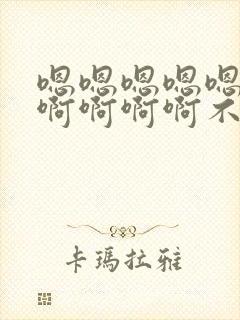 嗯嗯嗯嗯嗯
啊啊啊啊不
卡瑪拉雅